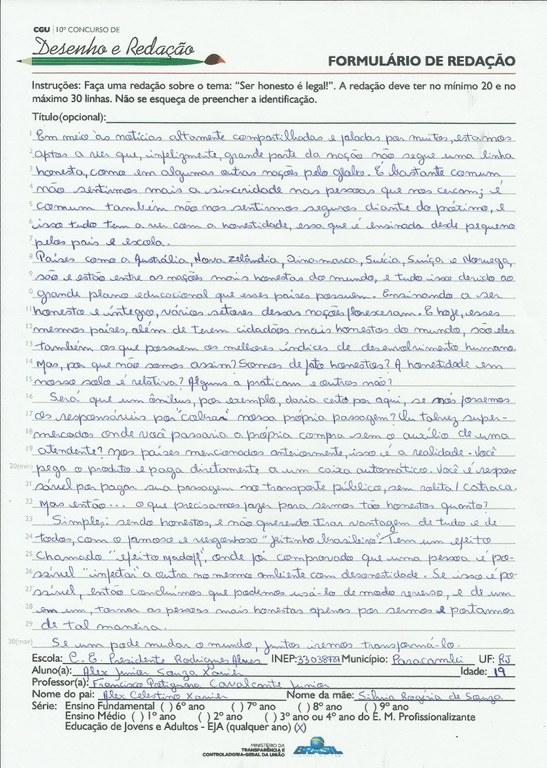 CGU | 10º CONCURSO DE
Desenho e Redação
FORMULÁRIO DE REDAÇÃO
Instruções: Faça uma redação sobre o tema: "Ser honesto é legal!". A redação deve ter no mínimo 20 e no
máximo 30 linhas. Não se esqueça de preencher a identificação.
Título(opcional):
1 Em meio às notícias altamente compartilhadas e faladas por muitos, estamos
2 aptos a ver que, infelizmente, grande parte da nação não segue uma linha
3 honesta, como em algumas outras nações pelo globo. É bastante comum
4 não sentirmos mais a sinceridade nas pessoas que nos cercam; é
5 comum também não nos sentirmos seguros diante do próximo, e
6 isso tudo tem a ver com a honestidade, essa que é ensinada desde pequeno
7 pelos pais e escola.
8 Países como a Austrália, Nova Zelândia, Dinamarca, Suécia, Suíça e Noruega,
9 são e estão entre as nações mais honestas do mundo, e tudo isso devido ao
10 grande plano educacional que esses países possuem. Ensinando a ser
11 honesto e íntegro, vários setores dessas nações floresceram. E hoje, esses
12 mesmos países, além de terem cidadãos mais honestos do mundo, são eles
13 também os que possuem os melhores índices de desenvolvimento humano.
14 Mas, por que não somos assim? Somos de fato honestos? A honetidade em
15 nosso solo é relativa? Alguns a praticam e outros não?
16 Será que um ônibus, por exemplo, daria certo por aqui, se nós fossemos
17 os responsáveis por "cobrar" nossa própria passagem? Ou talvez super-
18 mercados onde você passaria a própria compra sem o auxílio de uma
19 atendente? Nos países mencionados anteriormente, isso é a realidade. Você
20(min) pega o produto e paga diretamente a um caixa automático. Você é respon-
21 sável por pagar sua passagem no transporte público, sem roleta/catraca.
22 Mas então... o que precisamos fazer para sermos tão honestos quanto?
23 Simples: sendo honestos, e não querendo tirar vantagem de tudo e de
24 todos, com o famoso e vergonhoso "jeitinho brasileiro". Tem um efeito
25 chamado "efeito Madoff", onde foi comprovado que uma pessoa é pos-
26 sível "infetar" a outra no mesmo ambiente com desonestidade. Se isso é po-
27 ssível, então concluímos que podemos usá-lo de modo reverso, e de um
28 em um, tornar as pessoas mais honestas apenas por sermos e portarmos
29 de tal maneira.
30(max) Se um pode mudar o mundo, juntos iremos transformá-lo.
Escola: C. E. Presidente Rodrigues Alves INEP: 33038929 Município: Paracambi UF: RJ
Aluno(a): Alex Junior Souza Xavier Idade: 19
Professor(a): Francisco Cavalcante Junior
Nome do pai: Alex Celestino Xavier Nome da mãe: Silvia Rogéria de Souza
Série: Ensino Fundamental ( ) 6º ano ( ) 7º ano ( ) 8º ano ( ) 9º ano
Ensino Médio ( ) 1º ano ( ) 2º ano ( ) 3º ano ou 4º ano do E. M. Profissionalizante
Educação de Jovens e Adultos - EJA (qualquer ano) (X)
MINISTÉRIO DA
TRANSPARÊNCIA E
CONTROLADORIA-GERAL DA UNIÃO
BRASIL